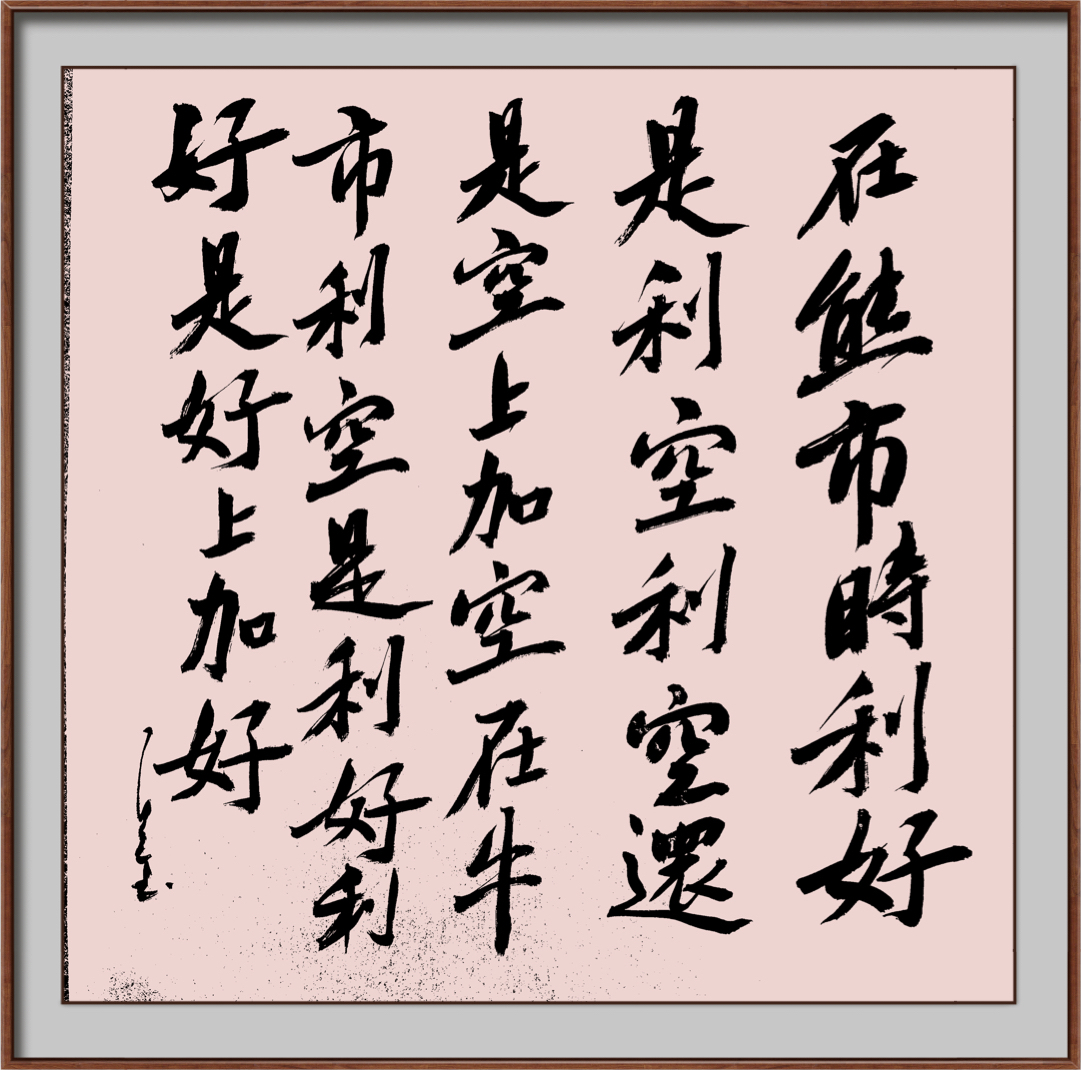 在熊市時利好
是利空利空還
是空上加空在牛
市利空是利好利
好是好上加好